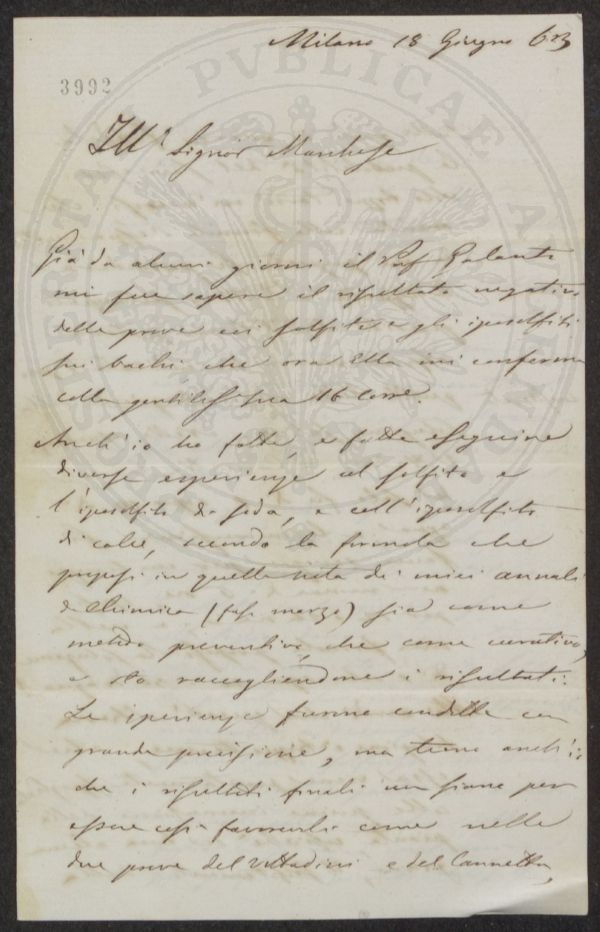 Milano 18 Giugno 63
3992
Ill.º Signor Marchese
Già da alcuni giorni il Prof. Galanti
mi fece sapere il risultato negativo
delle prove coi solfiti e gli iposolfiti
sui bachi, che ora Ella mi conferma
colla gentilissima 16 corr.
Anch'io ho fatte, e fatte eseguire
diverse esperienze col solfito e
l'iposolfito di soda, e coll'iposolfito
di calce, secondo la formola che
proposi in quella nota di miei annali
di Chimica (fasc. marzo) sia come
metodo preventivo, che come curativo,
e sto raccogliendone i risultati.
Le sperienze furono condotte con
grande precisione, ma temo anch'io
che i risultati finali non siano per
essere così favorevoli come nelle
due prove del Vittadini e del Cannetta,
PVBLICAE